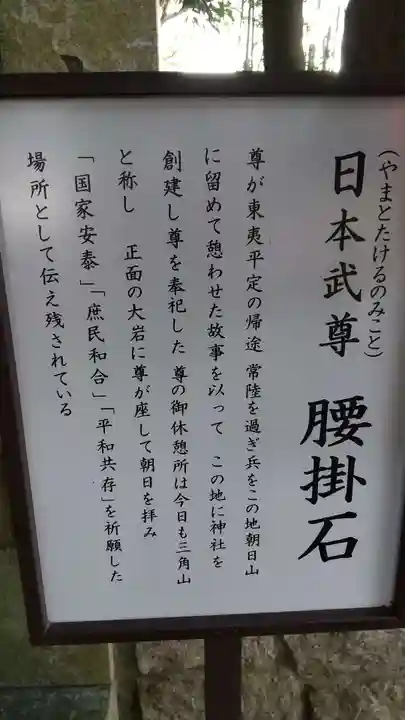 (やまとたけるのみこと)
日本武尊 腰掛石
尊が東夷平定の帰途 常陸を過ぎ兵をこの地朝日山
に留めて憩わせた故事を以って この地に神社を
創建し尊を奉祀した 尊の御休憩所は今日も三角山
と称し 正面の大岩に尊が座して朝日を拝み
「国家安泰」「庶民和合」「平和共存」を祈願した
場所として伝え残されている